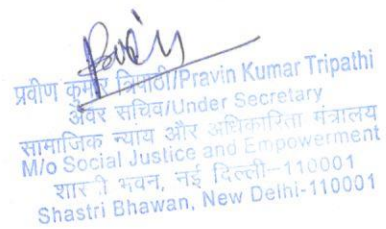 प्रवीण कुमार त्रिपाठी/Pravin Kumar Tripathi
अवर सचिव/Under Secretary
सामाजिक न्याय और अधिकारिता मंत्रालय
M/o Social Justice and Empowerment
भवन, नई दिल्ली-110001
Shastri Bhawan, New Delhi-110001